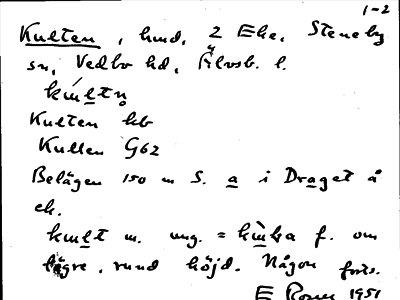 1-2
Kulten, hmd, 2 Eke, Steneby
sn, Vedbo hd, Älvsb. l.
Kulten kb
Kullen G62
Belägen 150 m S. a i Draget å
ek.
m. ung. = f. om
lägre, rund höjd. Någon forts.
1951